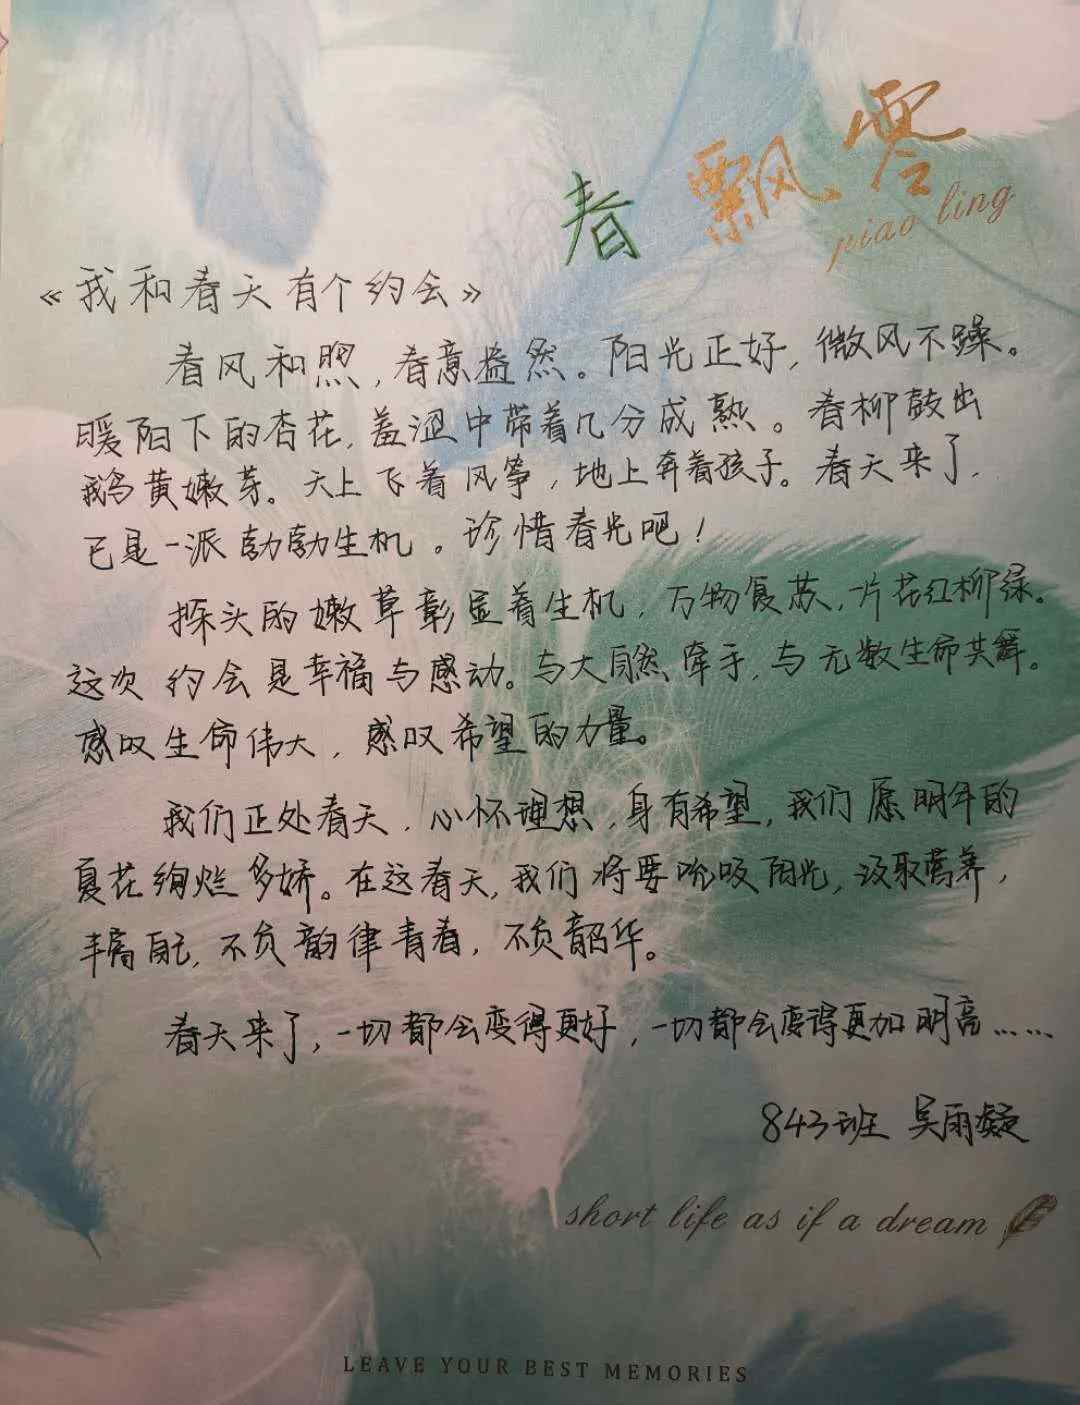 春 飘零
piao ling
《我和春天有个约会》
春风和煦,春意盎然。阳光正好,微风不躁。
暖阳下的杏花,羞涩中带着几分成熟。春柳鼓出
鹅黄嫩芽。天上飞着风筝,地上奔着孩子。春天来了,
已是一派勃勃生机。珍惜春光吧!
探头的嫩草彰显着生机,万物复苏,一片花红柳绿。
这次约会是幸福与感动。与大自然牵手,与无数生命共舞。
感叹生命伟大,感叹希望的力量。
我们正处春天,心怀理想,身有希望,我们愿明年的
夏花绚烂多娇。在这春天,我们将要吮吸阳光,汲取营养,
丰富自己,不负韵律青春,不负韶华。
春天来了,一切都会变得更好,一切都会变得更加明亮……
843班 吴雨凝
short life as if a dream
LEAVE YOUR BEST MEMORIES